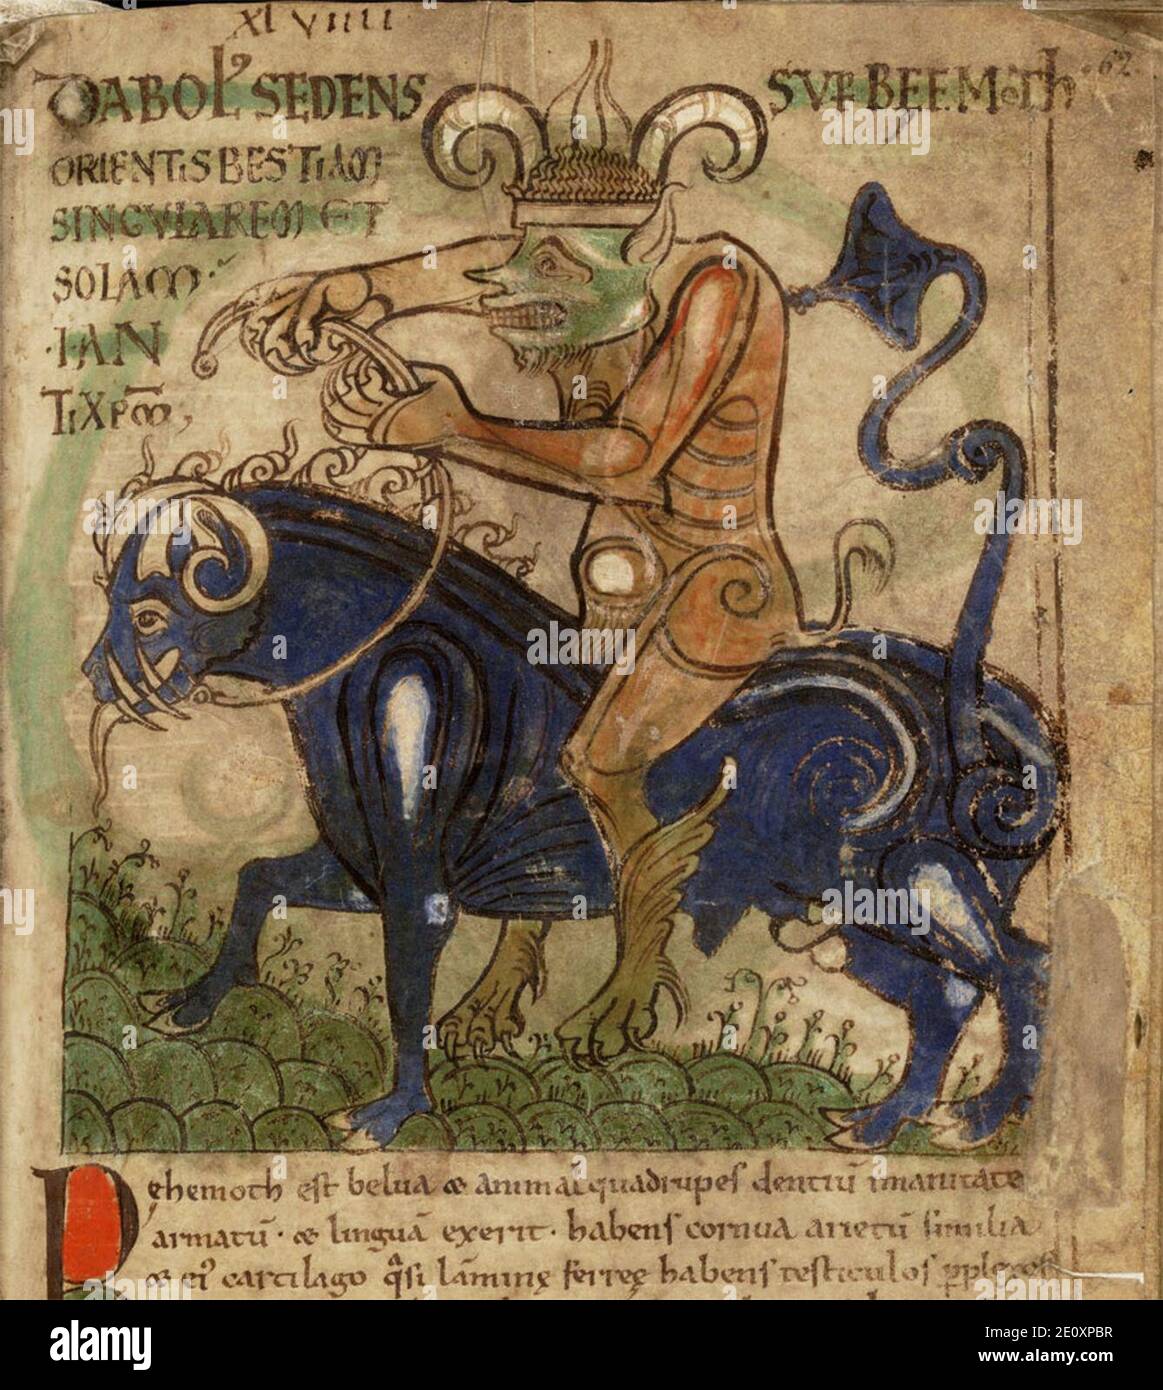 XLVIIII
62
DIABOLꝰ SEDENS SVPER BEEMOTH
ORIENTIS BESTIAM
SINGVLAREM ET
SOLAM·
·I·AN
TIXPM̅,
Behemoth est belua & animal quadrupes dentiū imanitate
armatū · & linguā exerit · habens cornua arietū similia
& eiꝰ cartilago q̄si lāminę ferreę habens testiculos ꝑplexos
alamy
Image ID: 2E0XPBR
www.alamy.com